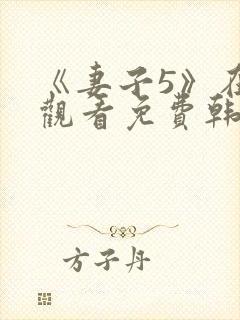 《妻子5》在
觀看免費韩
方子丹